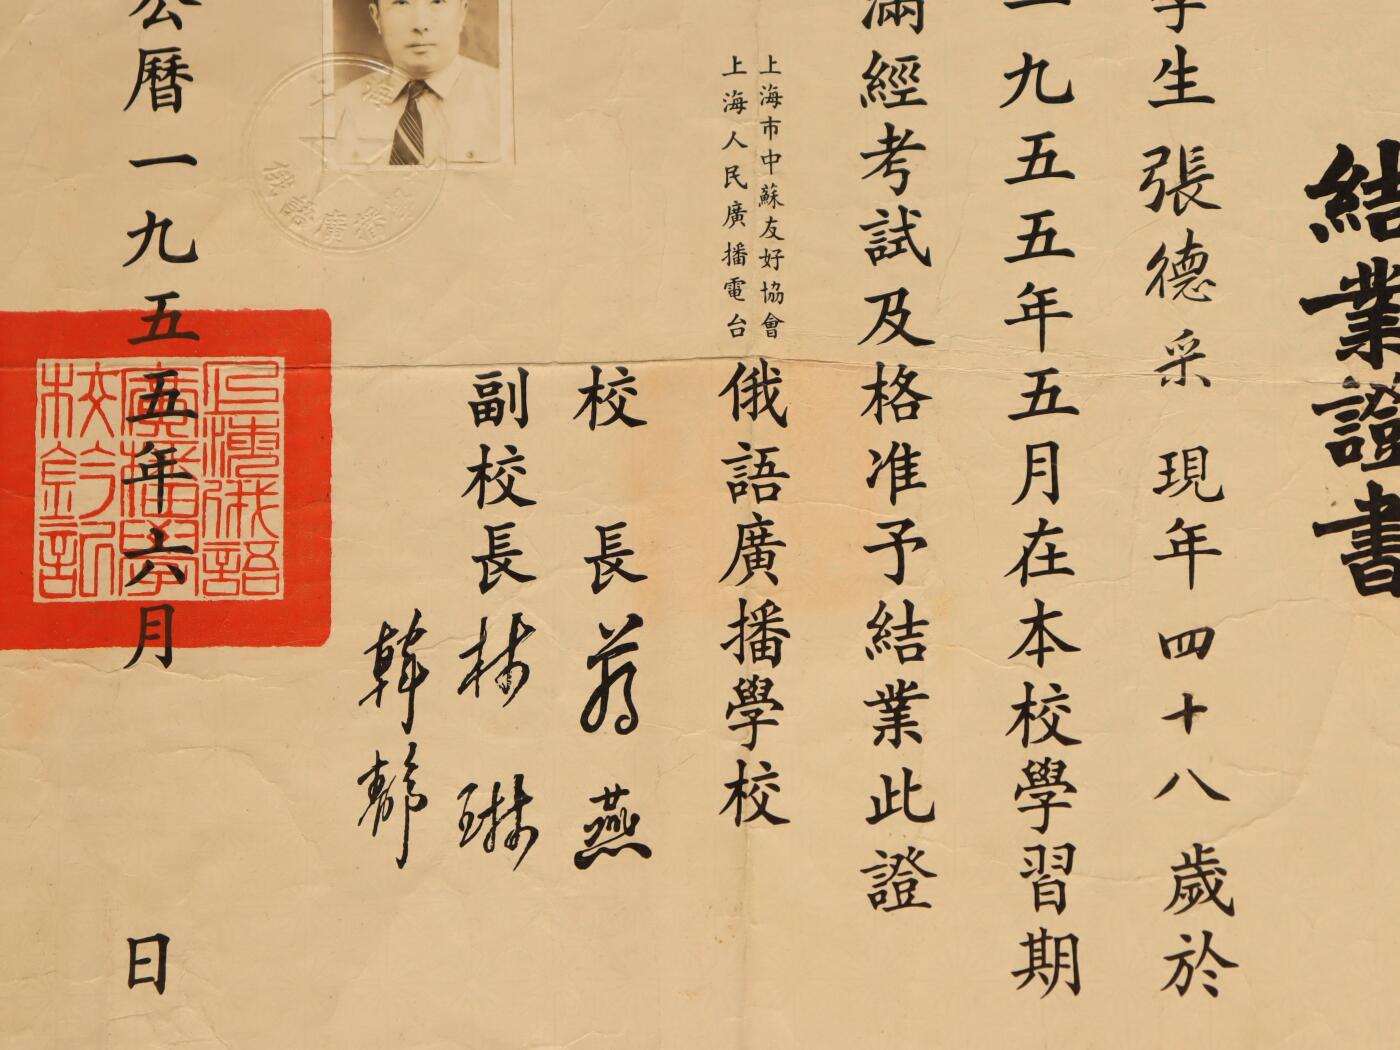 結業證書
學生張德采現年四十八歲於
一九五五年五月在本校學習期
滿經考試及格准予結業此證
上海市中蘇友好協會
上海人民廣播電台
俄語廣播學校
校長蔣燕
副校長林琳
韓靜
公曆一九五五年六月 日
上海俄語廣播學校鈐記
上海俄語廣播學校